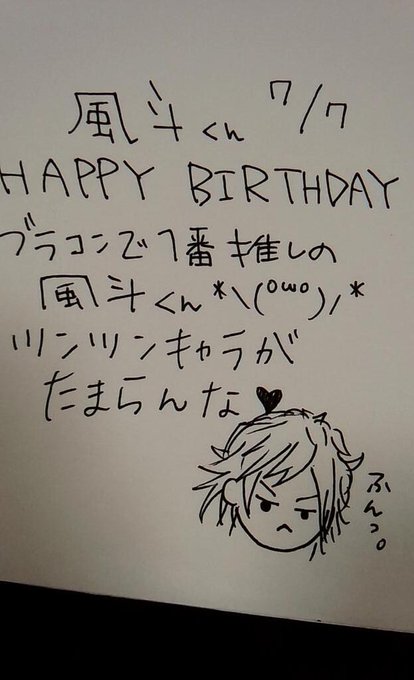 風斗くん 7/7
HAPPY BIRTHDAY
ブラコンで1番推しの
風斗くん*\(°ω°)/*
ツンツンキャラが
たまらんな♥
ふんっ。